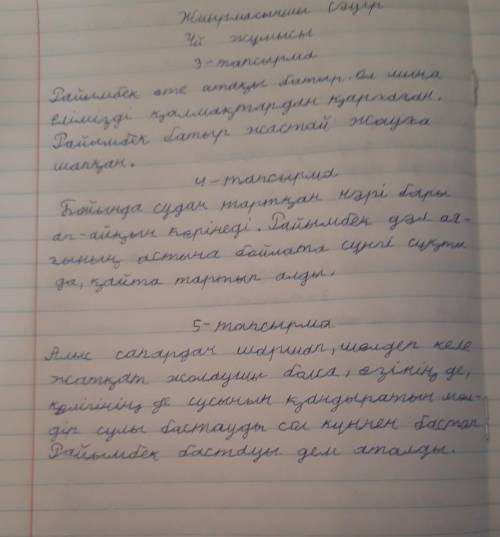 Жиырмасыншы сәуір
Үй жұмысы
3-тапсырма
Райымбек өте атақы батыр. Ол мына
елімізді қалмақтардан қорғаған.
Райымбек батыр жастай жауға
шапқан.
4-тапсырма
Бойында судан тартқан нәрі бары
ап-айқын көрінеді. Райымбек дәл ая-
ғының астына бойлата сүңгі сұқты
да, қайта тартып алды.
5-тапсырма
Алыс сапардан шаршап, шөлдеп келе
жатқат жолаушы болса, өзінің де,
көлігінің де сусынын қандыратын мөл-
дір сулы бастауды сол күннен бастап
Райымбек бастауы деп аталды.